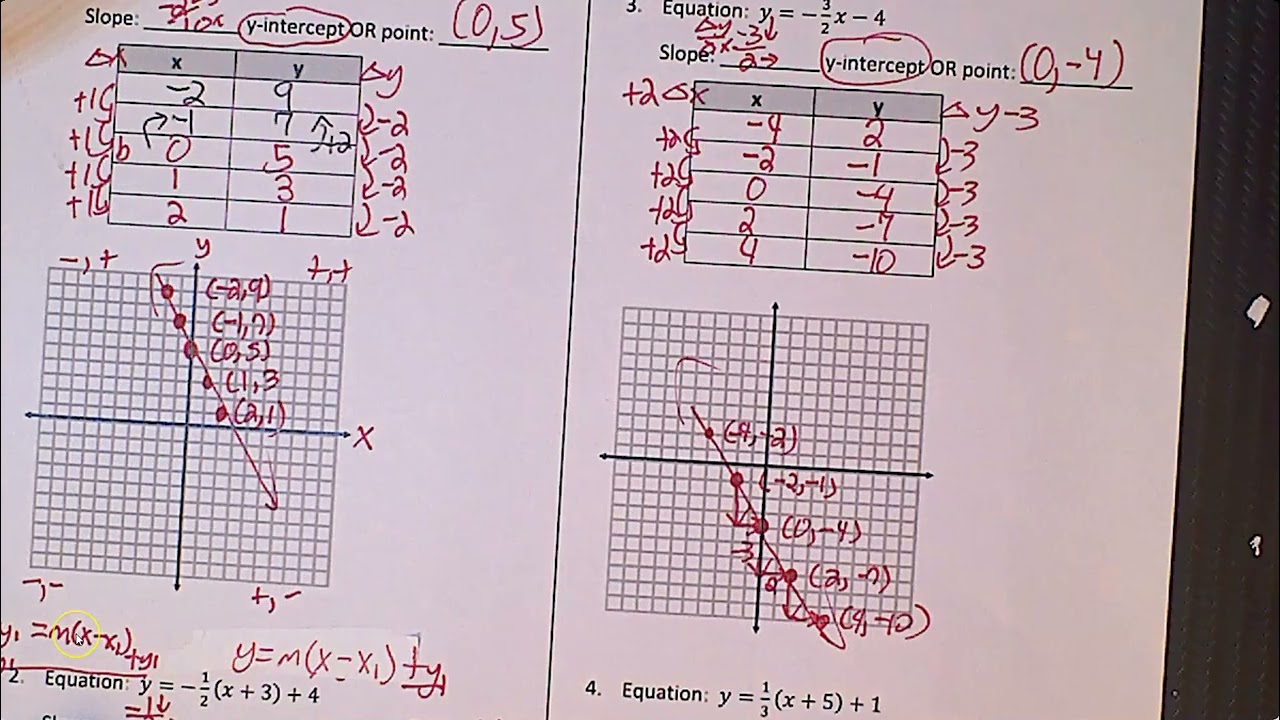 Slope: y-intercept OR point: (0,5)
Δx x y Δy
+1 -2 9
+1 -1 7 +2 -2
+1 b 0 5 -2
+1 1 3 -2
2 1 -2
y
-,+ +,+
(-2,9)
(-1,7)
(0,5)
(1,3
(2,1)
x
-,- +,-
y₁ = m(x-x₁)
+y₁
y=m(x-x₁)+y₁
2. Equation: y = -1/2(x + 3) + 4
-1↓
3. Equation: y = -3/2x - 4
Δy -3↓
Slope: 2 →
y-intercept OR point: (0,-4)
+2 Δx x y Δy -3
+2 -4 2 -3
+2 -2 -1 -3
+2 0 -4 -3
+2 2 -7 -3
4 -10
(-4,-2)
(-2,-1)
(0,-4)
-3
2
(2,-7)
(4,-10)
4. Equation: y = 1/3(x + 5) + 1